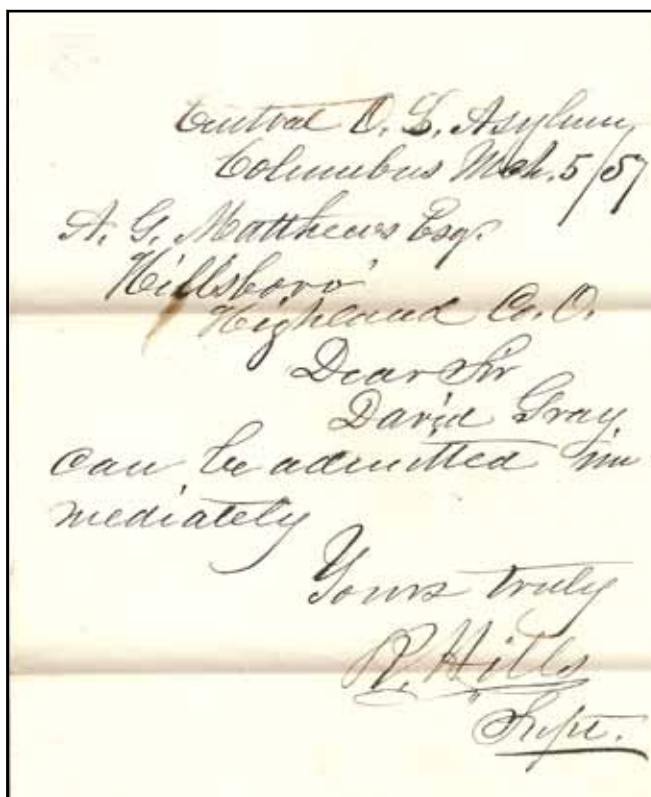 Central O. L. Asylum
Columbus Mch. 5/57
A. G. Matthews Esq.
Hillsboro'
Highland Co. O.
Dear Sir
David Gray
can be admitted im
mediately
Yours truly
R. Hills
Supt.